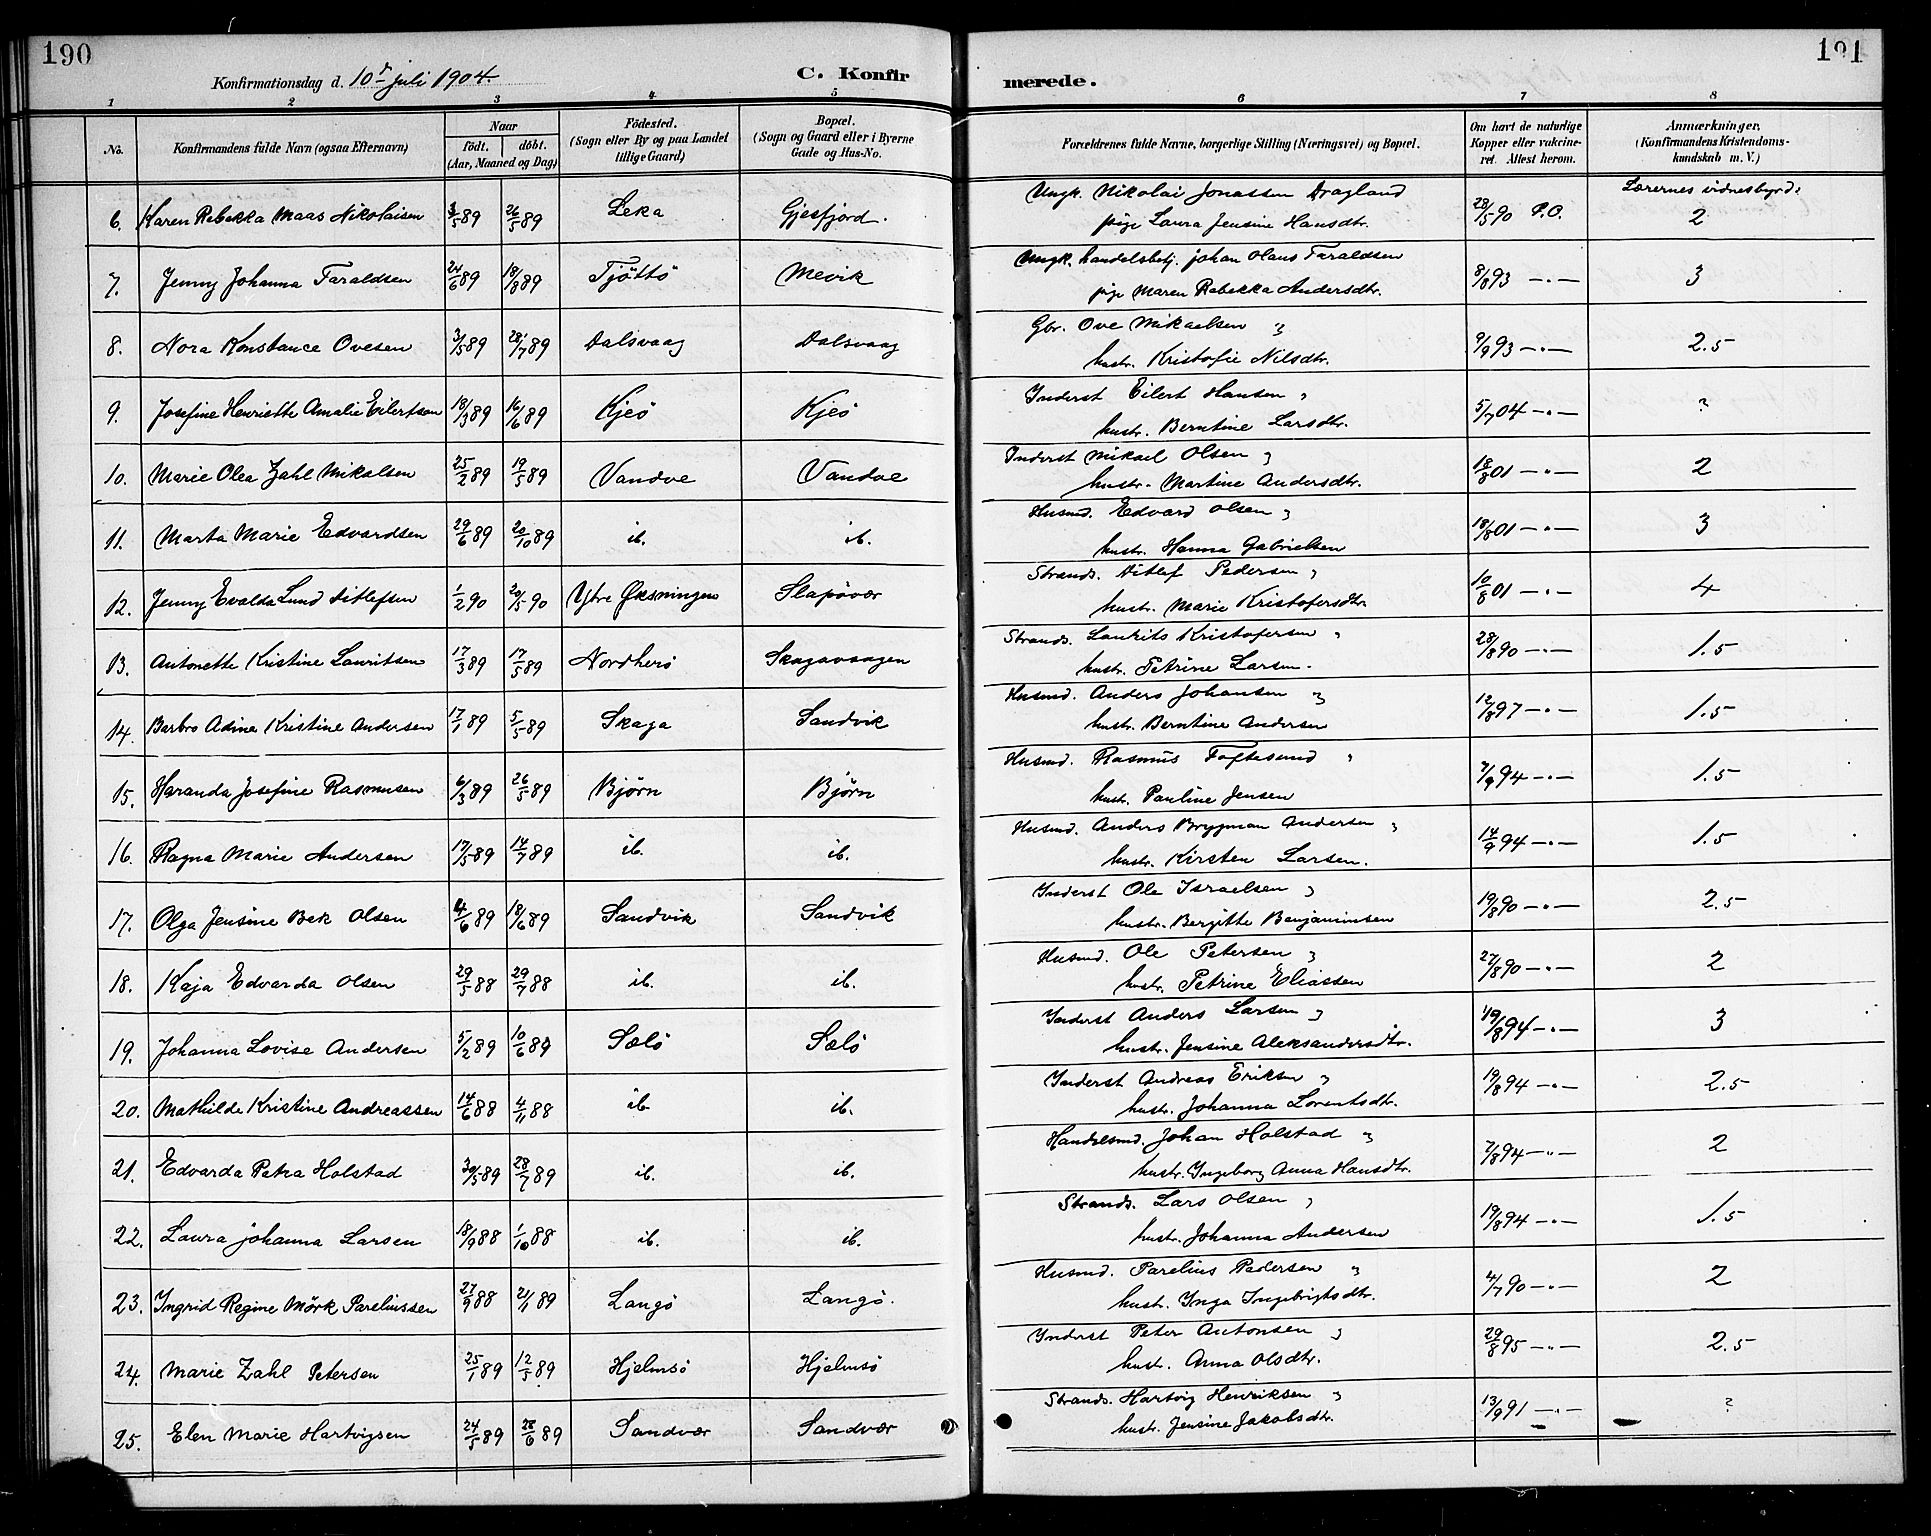 190
191
Konfirmationsdag d. 10de juli 1904.
C. Konfir
merede.
1 2 3 4 5 6 7 8
No.
Konfirmandens fulde Navn (ogsaa Efternavn)
Naar
födt. döbt.
(Aar, Maaned og Dag)
Födested.
(Sogn eller By og paa Landet
tillige Gaard)
Bopæl.
(Sogn og Gaard eller i Byerne
Gade og Hus-No.
Forældrenes fulde Navne, borgerlige Stilling (Næringsvei) og Bopæl.
Om havt de naturlige
Kopper eller vakcine-
ret. Attest herom.
Anmærkninger,
(Konfirmandens Kristendoms-
kundskab m. V.)
Lærernes vidnesbyrd:
6. Karen Rebekka Maas Nikolaisen 3/5 89 26/5 89 Leka Gjesfjord. Ungk. Nikolai Jonassen Dragland 28/5 90 P.O. 2
pige Laura Jensine Hansdtr.
7. Jenny Johanna Taraldsen 24/6 89 18/8 89 Tjöttö Mevik Ungk. handelsbetj. Johan Olaus Taraldsen 8/8 93 —„— 3
pige Maren Rebekka Andersdtr.
8. Nora Konstance Ovesen 3/5 89 28/7 89 Dalsvaag Dalsvaag Gbr. Ove Mikaelsen 9/9 93 —„— 2.5
hustr. Kristofie Nilsdtr.
9. Josefine Henriette Amalie Eilertsen 18/3 89 16/6 89 Kjeö Kjeö Inderst Eilert Hansen 5/7 04 —„— ?
hustr. Berntine Larsdtr.
10. Marie Olea Zahl Mikalsen 25/2 89 19/5 89 Vandve Vandve Inderst Mikael Olsen 18/8 01 —„— 2
hustr. Martine Andersdtr.
11. Marta Marie Edvardsen 29/6 89 20/10 89 ib. ib. Husmd. Edvard Olsen 18/8 01 —„— 3
hustr. Hanna Gabrielsen
12. Jenny Evalda Lund Ditlefsen 1/2 90 29/5 90 Ytre Øksningen Slapövær Strands. Ditlef Pedersen 10/8 01 —„— 4
hustr. Marie Kristofersdtr.
13. Antonette Kristine Lauritsen 17/3 89 17/5 89 Nordherö Skagavaagen Strands. Laurits Kristofersen 28/8 90 —„— 1.5
hustr. Petrine Larsen.
14. Barbro Adine Kristine Andersen 17/1 89 5/5 89 Skaga Sandvik Husmd. Anders Johansen 12/8 97 —„— 1.5
hustr. Berntine Andersen
15. Haranda Josefine Rasmusen 6/3 89 26/5 89 Bjørn Bjørn Husmd. Rasmus Toftesund 7/9 94 —„— 1.5
hustr. Pauline Jensen
16. Ragna Marie Andersen 17/5 89 14/7 89 ib. ib. Husmd. Anders Brygman Andersen 14/9 94 —„— 1.5
hustr. Kirsten Larsen.
17. Olga Jensine Bek Olsen 4/6 89 18/6 89 Sandvik Sandvik Inderst Ole Israelsen 19/8 90 —„— 2.5
hustr. Bergitte Benjaminsen
18. Kaja Edvarda Olsen 29/5 88 29/7 88 ib. ib. Husmd. Ole Petersen 27/8 90 —„— 2
hustr. Petrine Eliassen
19. Johanna Lovise Andersen 5/2 89 10/6 89 Sælö Sælö Inderst Anders Larsen 19/8 94 —„— 3
hustr. Jensine Aleksandersdtr.
20. Mathilde Kristine Andreassen 14/6 88 4/11 88 ib. ib. Inderst Andreas Eriksen 19/8 94 —„— 2.5
hustr. Johanna Lorentsdtr.
21. Edvarda Petra Holstad 30/5 89 28/7 89 ib. ib. Handelsmd. Johan Holstad 7/8 94 —„— 2
hustr. Ingeborg Anna Hansdtr.
22. Laura Johanna Larsen 18/9 88 1/10 88 ib. ib. Strands. Lars Olsen 19/8 94 —„— 1.5
hustr. Johanna Andersen
23. Ingrid Regine Mörk Pareliussen 27/9 88 21/1 89 Langö Langö. Husmd. Parelius Pedersen 4/7 90 —„— 2
hustr. Inga Ingebrigtsdtr.
24. Marie Zahl Petersen 25/1 89 12/5 89 Hjelmsö Hjelmsö Inderst Peter Antonsen 29/8 95 —„— 2.5
hustr. Anna Olsdtr.
25. Elen Marie Hartvigsen 24/5 89 28/6 89 Sandvær Sandvær Strands. Hartvig Henriksen 13/9 91 —„— ?
hustr. Jensine Jakobsdtr.